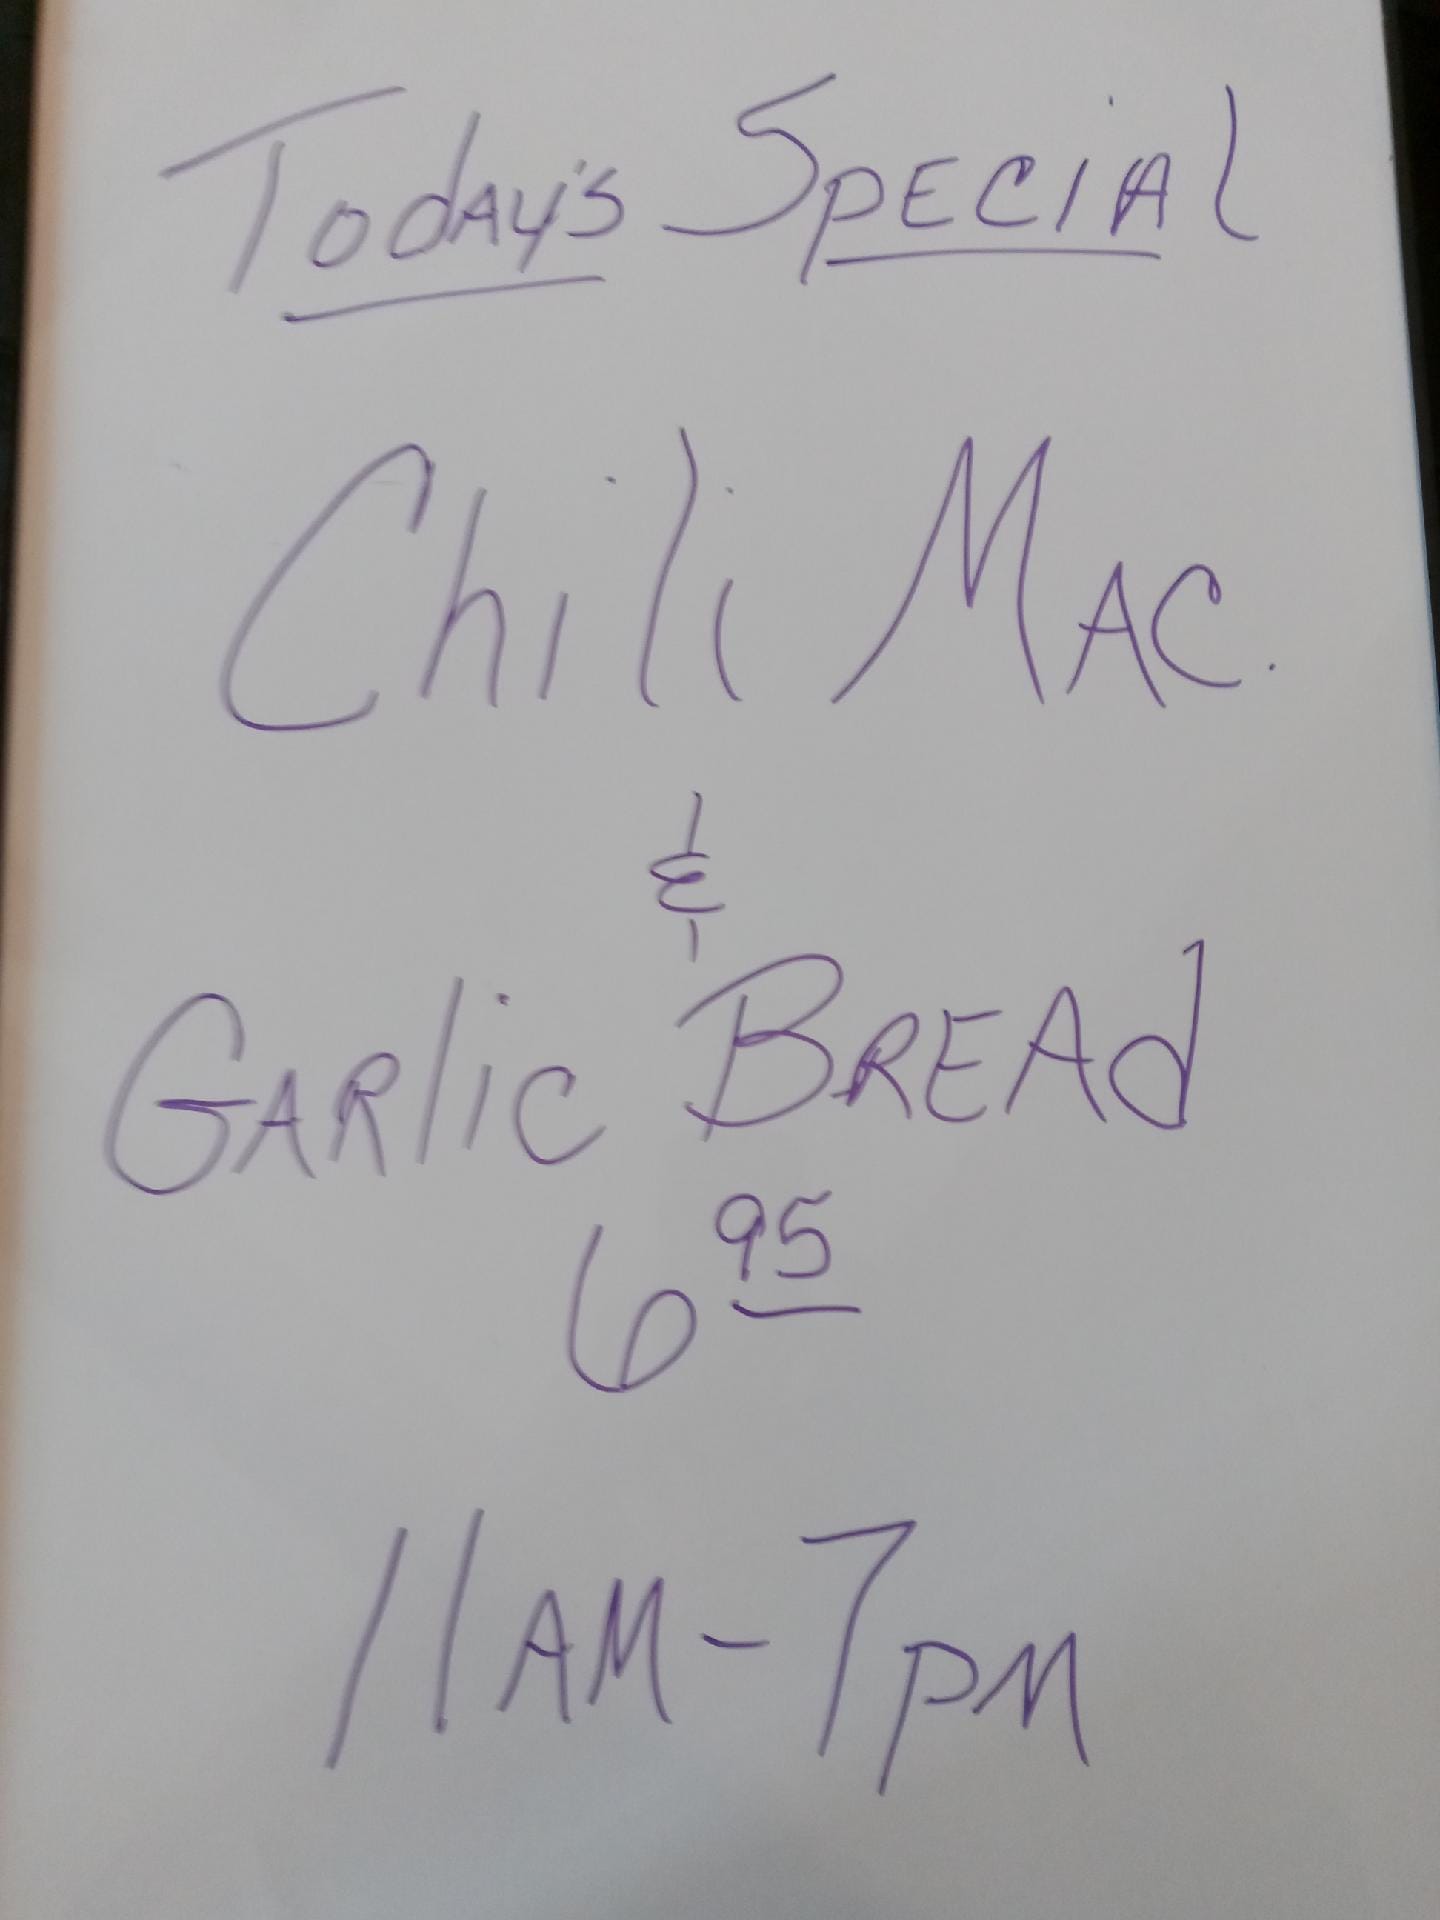 Today's Special
Chili Mac.
&
Garlic Bread
6 95
11AM-7pm